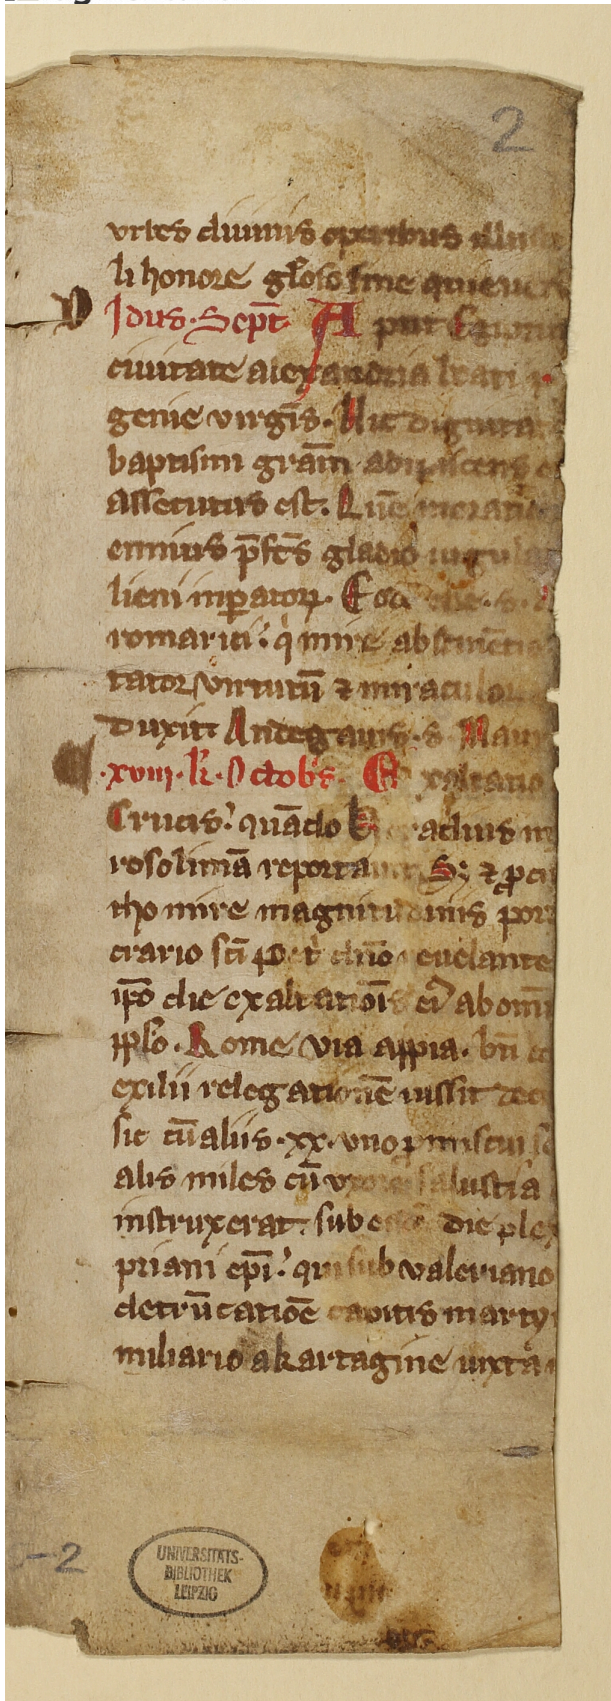 2
vrtes diuinis operibus illust
li honore gl'oso fine quieuer
D
Idus. Sept̄. Aput Egiptū
ciuitate alexandria beati p
genie virgīs. Hic dignitat
baptismi gr̄am adipiscens
assecutus est. Quē
ennius p̄fc̄s gladio iugulat
lieni inperatorꝝ. Eodē die. s.
romarici. q̇ mire abstinētie
tator virtutū ⁊ miraculoꝝ
duxit Andegauis. s. Maur
.xviii. k̄. Octobs. Exaltatio
Crucis. quādo Eraclius
rosolimā reportauit. Sꝫ ⁊ ꝓcu
tho mire magnitudinis port
crario sc̄i Petri dn̄o reuelante
ip̄o die exaltatiōis ei' ab omī
pp̄lo. Rome via appia. bn̄
exilii relegationē iussit dec
sit cū aliis .xx. vno
alis miles cū vxore salustia
instruxerat. sub die plex
priani ep̄i. qui sub valeriano
detrūcatiōe capitis marty
miliario a kartagine iuxta
-2
UNIVERSITÄTS-
BIBLIOTHEK
LEIPZIG